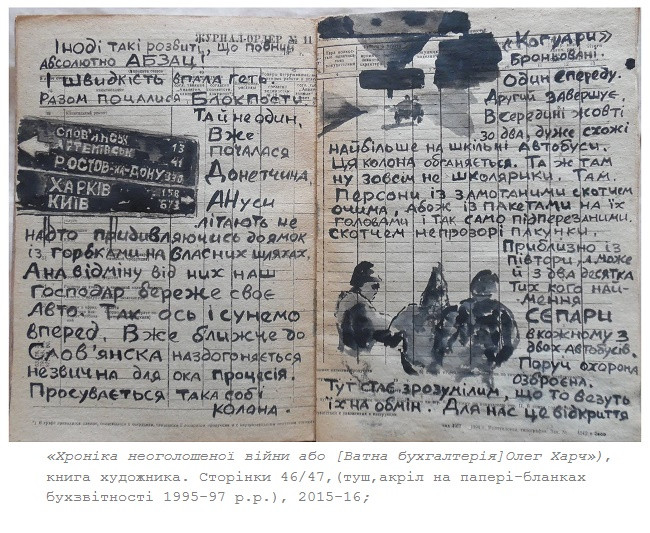 ЖУРНАЛ-ОРДЕР № 11
Іноді такі розвиті, що повний
абсолютно АБЗАЦ!
І швидкість впала геть.
Разом почалися Блокпости
Та й не один.
Вже
почалася
Донетчина,
АНуси
літають не
надто придивляючись до ямок
із горбками на власних шляхах.
А на відміну від них наш
Господар береже своє
Авто. Так ось і сунемо
вперед. Вже ближче до
Слов'янска наздоганяється
незвична для ока процесія.
Просувається така собі
колона.
СЛОВ'ЯНСЬК 13
АРТЕМІВСЬК 41
РОСТОВ-НА-ДОНУ
ХАРКІВ 158
КИЇВ 673
«Когуари»
Броньовані.
Один спереду.
Другий завершує.
Всередині жовті
зо два, дуже схожі
найбільше на шкільні Автобуси.
Ця колона обганяється. Та ж там
ну зовсім не школярики. Там.
Персони із замотаними скотчем
очима, Або ж із пакетами на їх
головами і так само підперезаними.
скотчем непрозорі пакунки.
Приблизно із
півтори, а може
й з два десятка
тих кого най-
мення
СЄПАРИ
в кожному з
двох Автобусів.
Поруч охорона
озброєна.
Тут стає зрозумілим, що то везуть
їх на обмін. Для нас це відкриття
«Хроніка неоголошеної війни або [Ватна бухгалтерія]Олег Харч»),
книга художника. Сторінки 46/47,(туш,акріл на папері-бланках
бухзвітності 1995-97 р.р.), 2015-16;